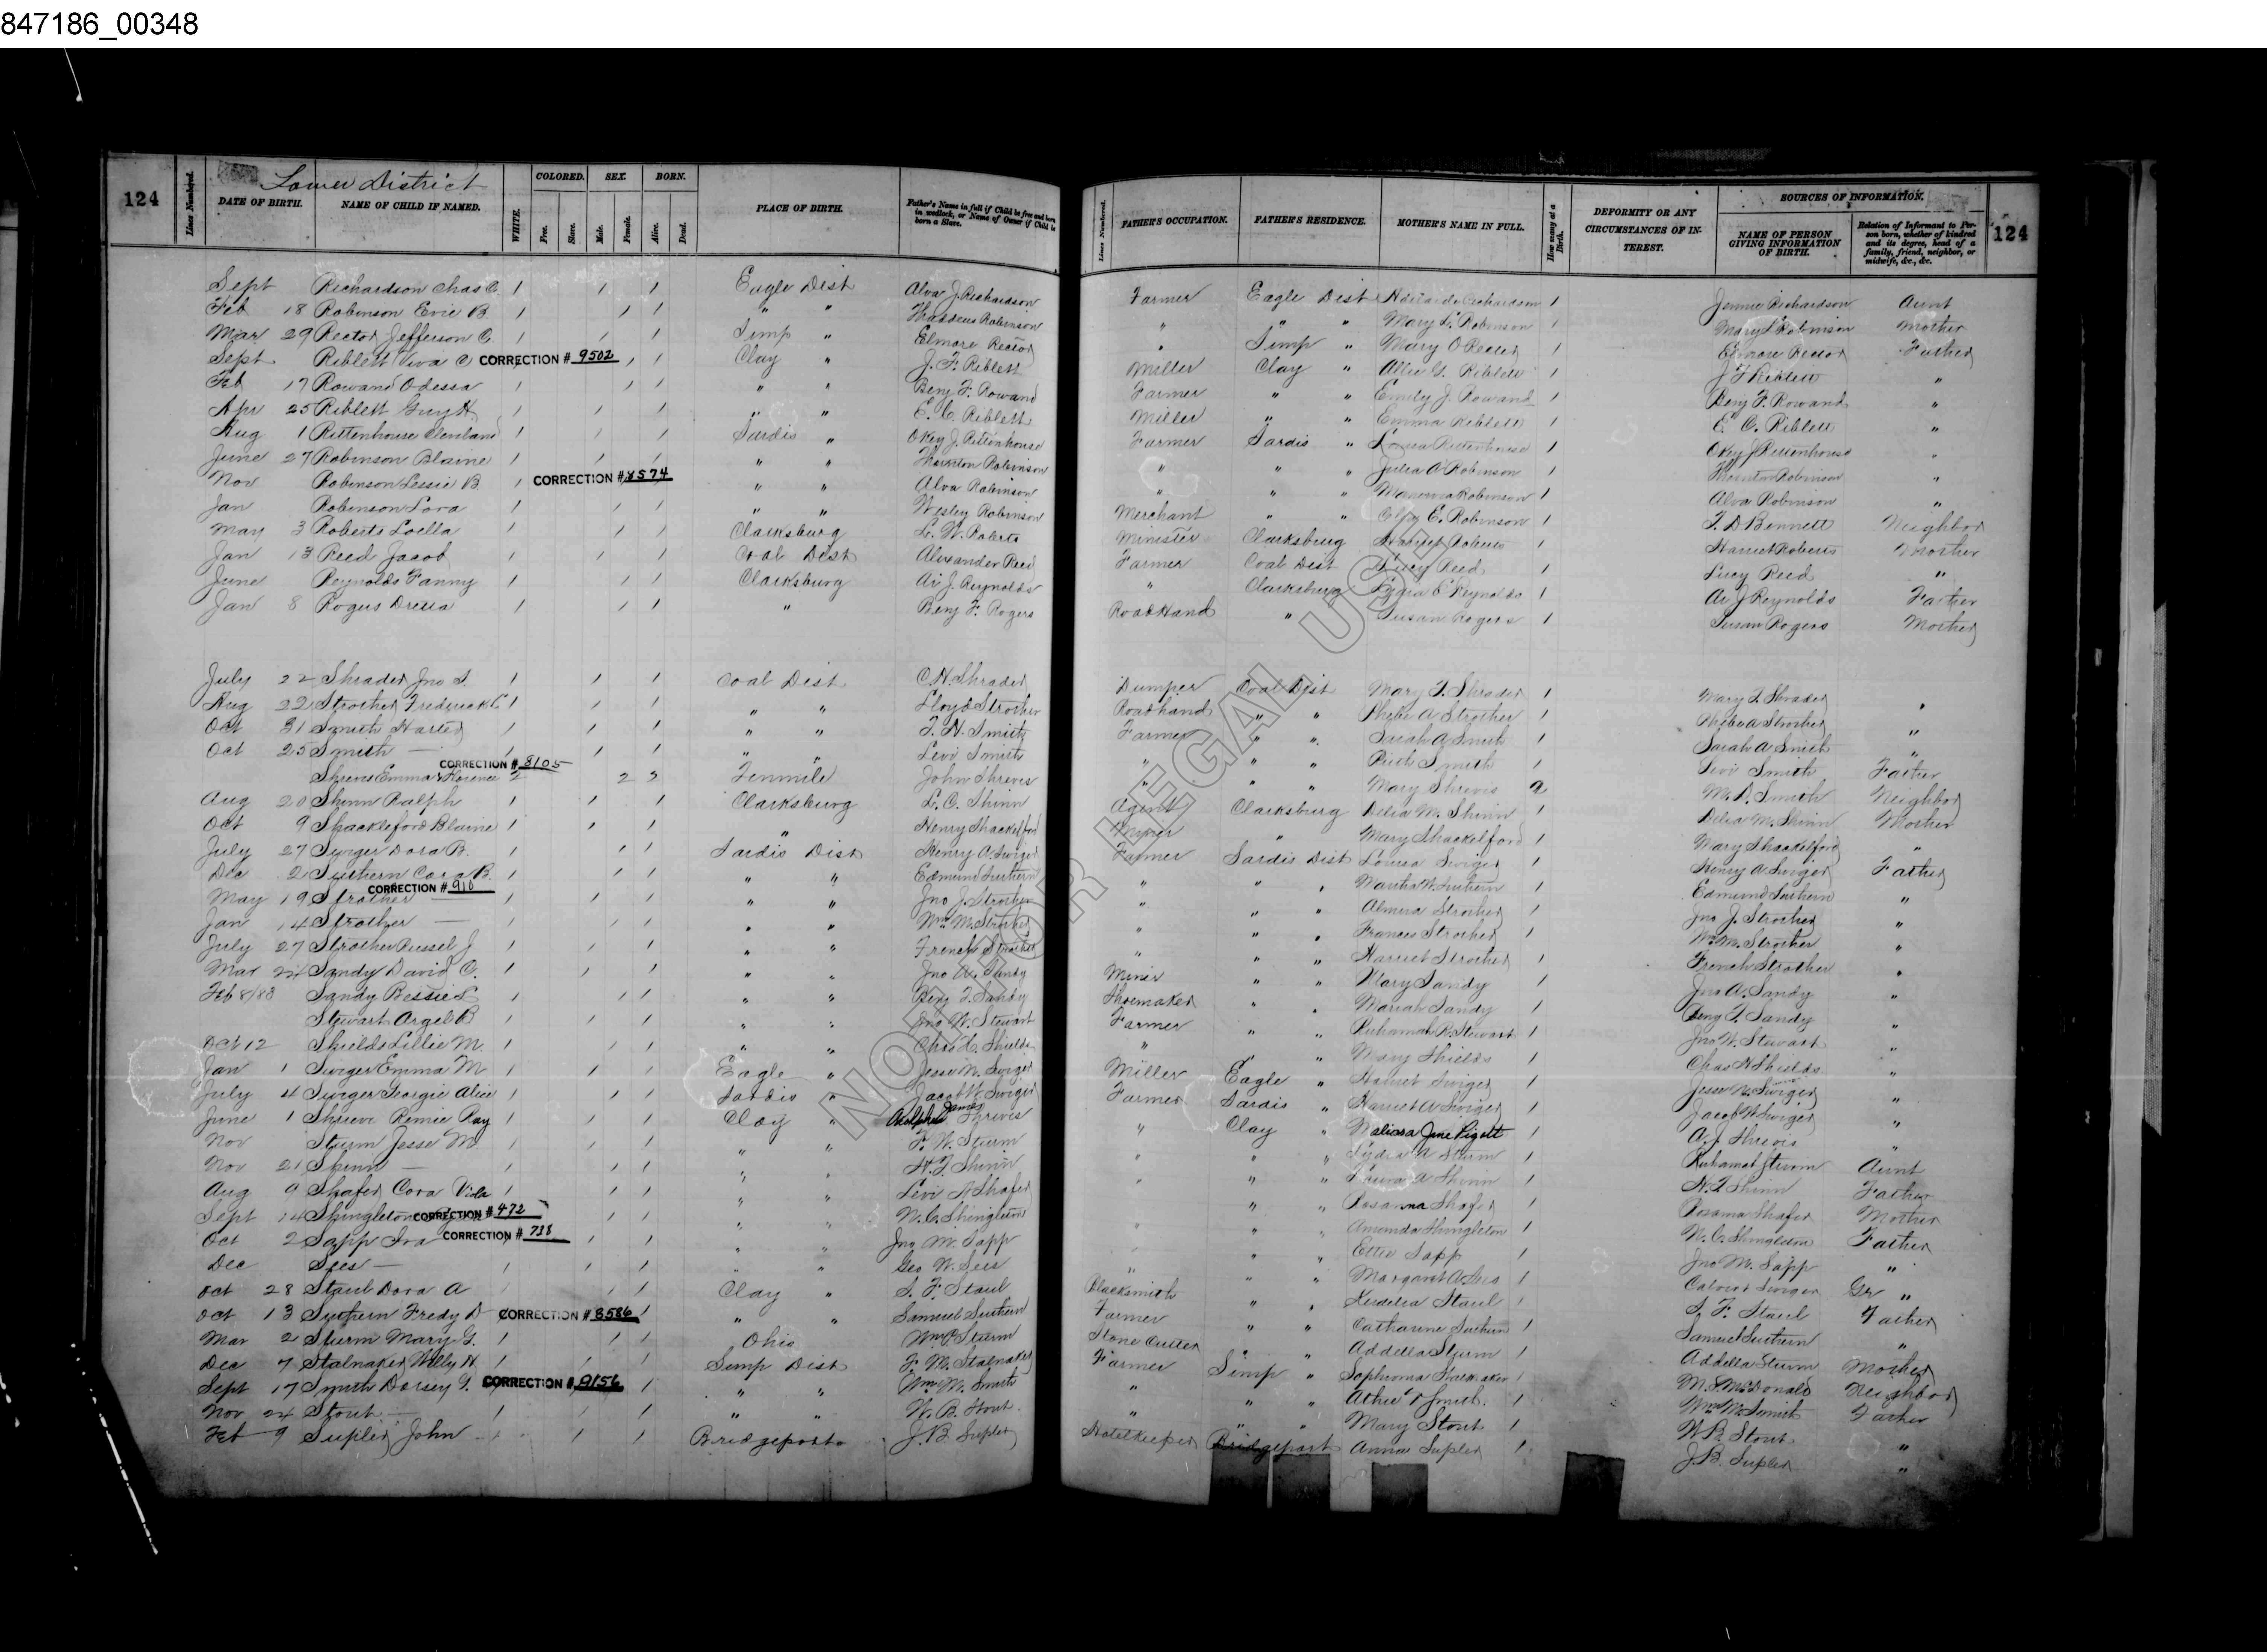 847186_00348
124
Lower District
Lines Numbered.
DATE OF BIRTH.
NAME OF CHILD IF NAMED.
WHITE.
COLORED.
Free.
Slave.
SEX.
Male.
Female.
BORN.
Alive.
Dead.
PLACE OF BIRTH.
Father's Name in full if Child be free and born in wedlock, or Name of Owner if Child be born a Slave.
Lines Numbered.
FATHER'S OCCUPATION.
FATHER'S RESIDENCE.
MOTHER'S NAME IN FULL.
How many at a Birth.
DEFORMITY OR ANY CIRCUMSTANCES OF INTEREST.
SOURCES OF INFORMATION.
NAME OF PERSON GIVING INFORMATION OF BIRTH.
Relation of Informant to Person born, whether of kindred and its degree, head of a family, friend, neighbor, or midwife, &c., &c.
124
Sept Richardson Chas C. 1 1 1 Eagle Dist Alva J. Richardson Farmer Eagle Dist Richardson 1 Jennie Richardson Aunt
Feb 18 Robinson Evie B 1 1 1 " " Thaddeus Robinson " " " Mary L. Robinson 1 Mary L Robinson Mother
Mar 29 Rector Jefferson C. 1 1 1 Simp " Elmore Rector " Simp " Mary O Rector 1 Elmore Rector Father
Sept Riblett Viva C CORRECTION # 9502 1 1 Clay " J. F. Riblett Miller Clay " Allie G. Riblett 1 J F Riblett "
Feb 17 Rowand Odessa 1 1 1 " " Benj F. Rowand Farmer " " Emily J. Rowand 1 Benj F. Rowand "
Apr 25 Riblett Guy H 1 1 1 " " E. C. Riblett Miller " " Emma Riblett 1 E C. Riblett "
Aug 1 Rittenhouse Cleveland 1 1 1 Sardis " Okey J. Rittenhouse Farmer Sardis " Rittenhouse 1 Okey J Rittenhouse "
June 27 Robinson Blaine 1 1 1 " " Thornton Robinson " " " Julia A Robinson 1 Thornton Robinson "
Nov Robinson Lessie B. 1 CORRECTION # 8574 " " Alva Robinson " " " Robinson 1 Alva Robinson "
Jan Robinson Lora 1 1 1 " " Wesley Robinson Merchant " " E. Robinson 1 F. D Bennett Neighbor
May 3 Roberts Loella 1 1 1 Clarksburg L. W. Roberts Minister Clarksburg Harriet Roberts 1 Harriet Roberts Mother
Jan 13 Reed Jacob 1 1 1 Coal Dist Alexander Reed Farmer Coal Dist Lucy Reed 1 Lucy Reed "
June Reynolds Fanny 1 1 1 Clarksburg A. J. Reynolds " Clarksburg Reynolds 1 A J Reynolds Father
Jan 8 Rogers 1 1 1 " Benj F. Rogers Road Hand " Susan Rogers 1 Susan Rogers Mother
July 22 Shrader Jno S. 1 1 1 Coal Dist C. H. Shrader Dumper Coal Dist Mary F. Shrader 1 Mary F. Shrader "
Aug 22 Strother Frederick 1 1 1 " " Lloyd Strother Roadhand " " Phebe A Strother 1 Phebe A Strother "
Oct 31 Smith Harter 1 1 1 " " F. H. Smith Farmer " " Sarah A Smith 1 Sarah A Smith "
Oct 25 Smith — 1 1 1 " " Levi Smith " " " Ruth Smith 1 Levi Smith Father
CORRECTION # 8105
Shreves Emma & Florence 2 2 2 Tenmile John Shreves " " " Mary Shreves 2 M. D. Smith Neighbor
Aug 20 Shinn Ralph 1 1 1 Clarksburg L. C. Shinn Agent Clarksburg Delia M. Shinn 1 Delia M. Shinn Mother
Oct 9 Shackleford Blaine 1 1 1 " Henry Shackelford Miner " Mary Shackelford 1 Mary Shackelford "
July 27 Swiger Dora B. 1 1 1 Sardis Dist Henry A. Swiger Farmer Sardis Dist Louisa Swiger 1 Henry A Swiger Father
Dec 2 Suthern Cora B. 1 1 1 " " Edmund Suthern " " " Martha W. Suthern 1 Edmund Suthern "
CORRECTION # 910
May 19 Strother — 1 1 1 " " Jno J. Strother " " " Almira Strother 1 Jno J. Strother "
Jan 14 Strother — 1 1 1 " " Wm M. Strother " " " Frances Strother 1 Wm M. Strother "
July 27 Strother Russel J. 1 1 1 " " French Strother " " " Harriet Strother French Strother "
Mar 24 Sandy David C. 1 1 1 " " Jno A. Sandy Miner " " Mary Sandy 1 Jno A. Sandy "
Feb 8/83 Sandy Bessie L 1 1 1 " " Benj F. Sandy Shoemaker " " Mariah Sandy 1 Benj F. Sandy "
Stewart Argel B 1 1 1 " " Jno W. Stewart Farmer " " Ruhamah R. Stewart 1 Jno W. Stewart "
Oct 12 Shields Lillie M. 1 1 1 " " Chas H. Shields " " Mary Shields 1 Chas H Shields "
Jan 1 Swiger Emma M 1 1 1 Eagle " Jesse N. Swiger Miller Eagle " Harriet Swiger 1 Jesse N. Swiger "
July 4 Swiger Georgie Alice 1 1 1 Sardis " Jacob W. Swiger Farmer Sardis " Harriet A Swiger 1 Jacob W Swiger "
June 1 Shrieve Remie Ray 1 1 1 Clay " Adolphus James Shreves " Clay " Malissa Jane Pigott 1 A. J. Shreves "
Nov Sturm Jesse M. 1 1 1 " " F. W. Sturm " " " Lydia A Sturm 1 Ruhamah Sturm Aunt
Nov 21 Shinn — 1 1 1 " " H. F. Shinn " " " Laura A Shinn 1 H. F Shinn Father
Aug 9 Shafer Cora Vida 1 1 1 " " Levi N Shafer " " Rosanna Shafer 1 Rosanna Shafer Mother
Sept 14 Shingleton CORRECTION # 472 1 1 " " N. C. Shingleton " " Amanda Shingleton 1 N. C. Shingleton Father
Oct 2 Sapp Ira CORRECTION # 738 1 1 " " Jno M. Sapp " " Ettie Sapp 1 Jno M. Sapp "
Dec Sees — 1 1 1 " " Geo W. Sees " " " Margaret A. Sees 1 Calvert Swiger Gr "
Oct 28 Staul Dora A 1 1 1 Clay " S. F. Staul Blacksmith " " Staul 1 S. F. Staul Father
Oct 13 Suthern Fredy D CORRECTION # 8586 1 " " Samuel Suthern Farmer " " Catharine Suthern 1 Samuel Suthern "
Mar 2 Sturm Mary G. 1 1 1 Ohio Wm P. Sturm Stone Cutter " " Addella Sturm 1 Addella Sturm Mother
Dec 7 Stalnaker Willy H 1 1 1 Simp Dist F. M. Stalnaker Farmer Simp " Sophronia Stalnaker 1 M. McDonald Neighbor
Sept 17 Smith Dorsey G. CORRECTION # 9156 1 " " Wm M. Smith " " " Smith 1 Wm M. Smith Father
Nov 24 Stout — 1 1 1 " " W. B. Stout " " " Mary Stout 1 W B. Stout "
Feb 9 Supler John 1 1 1 Bridgeport J. B. Supler Hotelkeeper Bridgeport Anna Supler 1 J. B. Supler "
NOT FOR LEGAL USE